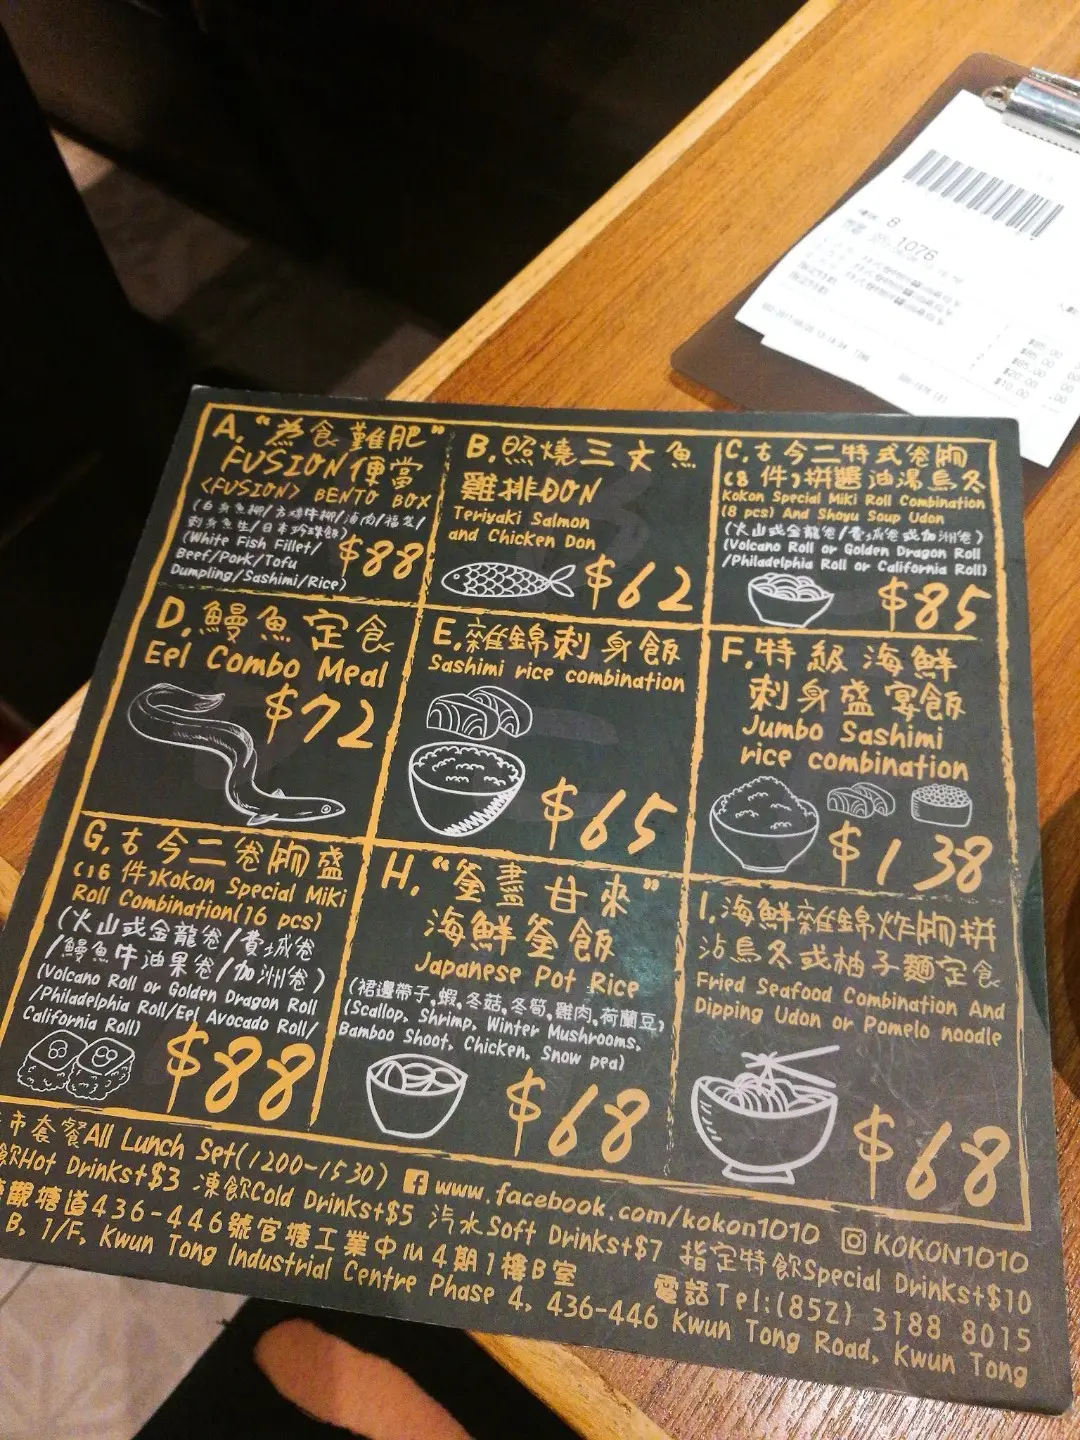 A. "為食難肥"
FUSION 便當
<FUSION> BENTO BOX
(White Fish Fillet/
Beef/Pork/Tofu
Dumpling/Sashimi/Rice)
$88
B. 照燒三文魚
雞排DON
Teriyaki Salmon
and Chicken Don
$62
C. 古今二特式卷物
(8 件)拼醬油湯烏冬
Kokon Special Miki Roll Combination
(8 pcs) And Shoyu Soup Udon
(火山或金龍卷/費城卷或加洲卷)
(Volcano Roll or Golden Dragon Roll
/Philadelphia Roll or California Roll)
$85
D. 鰻魚定食
Eel Combo Meal
$72
E. 雜錦刺身飯
Sashimi rice combination
$65
F. 特級海鮮
刺身盛宴飯
Jumbo Sashimi
rice combination
$138
G. 古今二卷物盛
(16 件)Kokon Special Miki
Roll Combination(16 pcs)
(火山或金龍卷/費城卷
/鰻魚牛油果卷/加洲卷)
(Volcano Roll or Golden Dragon Roll
/Philadelphia Roll/Eel Avocado Roll/
California Roll)
$88
H. "釜盡甘來"
海鮮釜飯
Japanese Pot Rice
(裙邊帶子,蝦,冬菇,冬筍,雞肉,荷蘭豆)
(Scallop, Shrimp, Winter Mushrooms,
Bamboo Shoot, Chicken, Snow pea)
$68
I. 海鮮雜錦炸物拼
沾烏冬或柚子麵定食
Fried Seafood Combination And
Dipping Udon or Pomelo noodle
$68
市套餐All Lunch Set(1200-1530) www.facebook.com/kokon1010 KOKON1010
飲Hot Drinks+$3 凍飲Cold Drinks+$5 汽水Soft Drinks+$7 指定特飲Special Drinks+$10
觀塘道436-446號官塘工業中心4期1樓B室 電話Tel:(852) 3188 8015
B, 1/F, Kwun Tong Industrial Centre Phase 4, 436-446 Kwun Tong Road, Kwun Tong
8
1076
$85.00